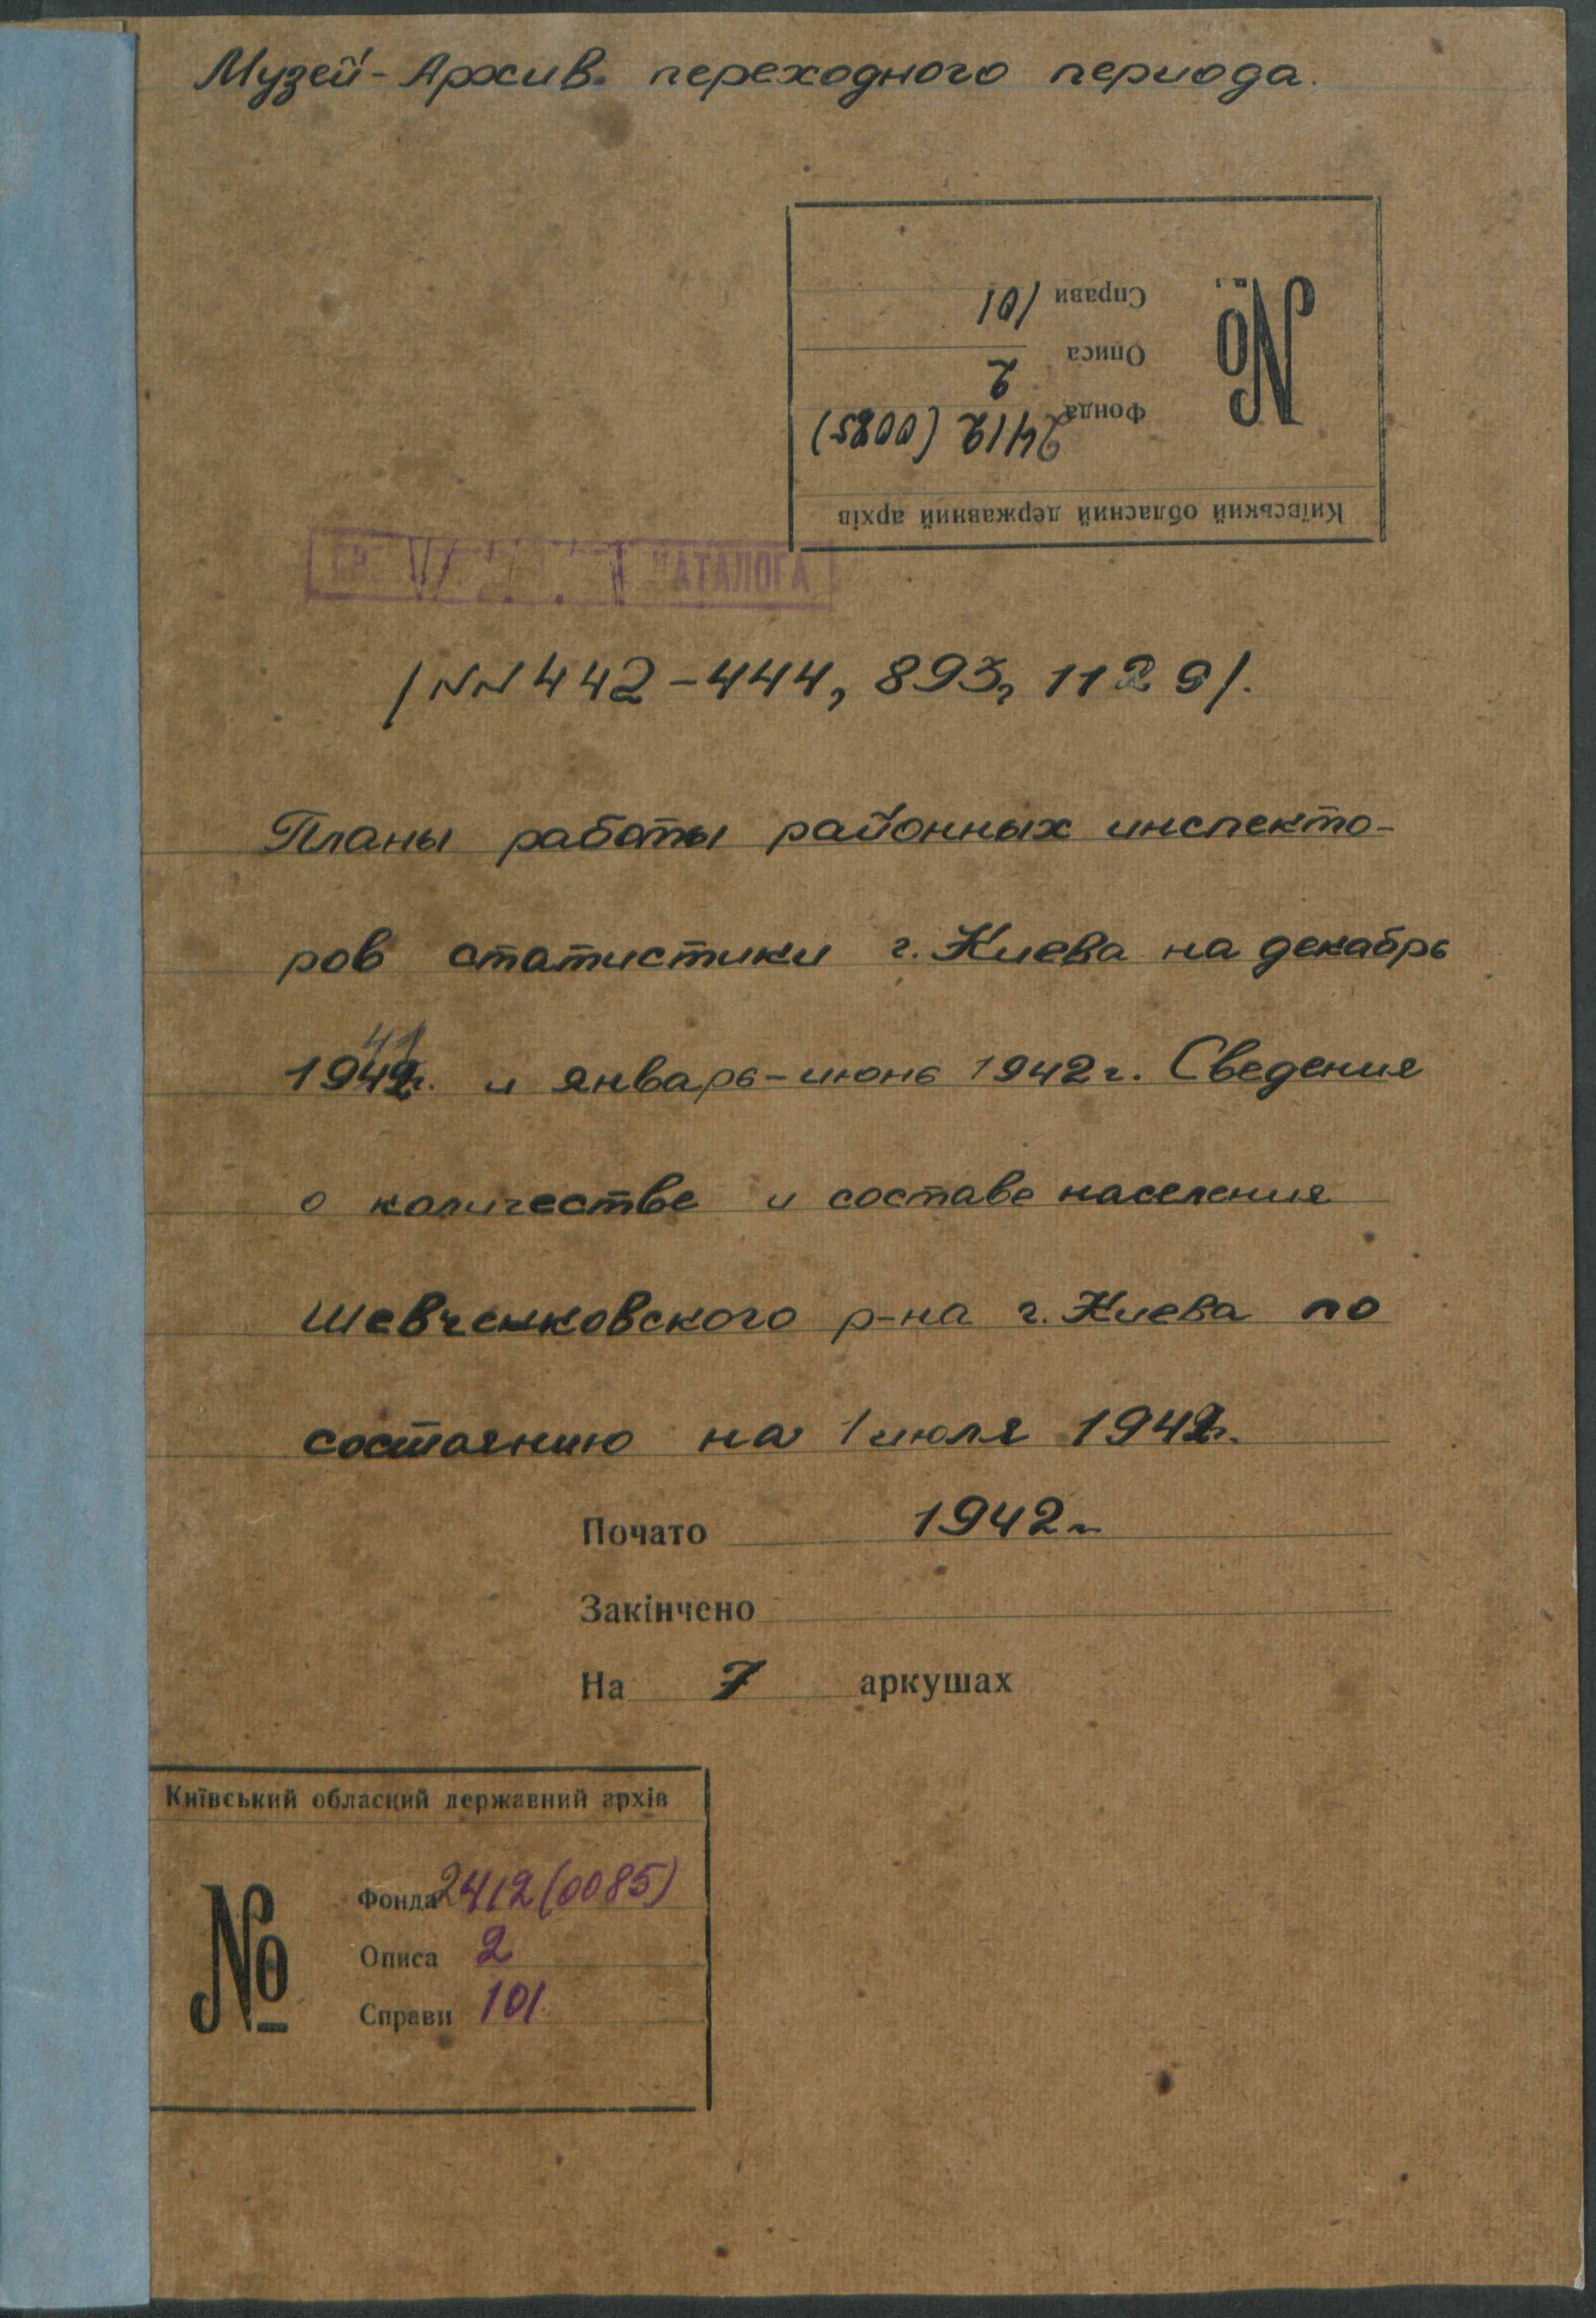 Музей-Архив переходного периода.
Київський обласний державний архів
№
Фонда 2412 (0085)
Описа 2
Справи 101
КАТАЛОГА
/NN 442-444, 893, 1129/.
Планы работы районных инспекто-
ров статистики г. Киева на декабрь
41
1942г. и январь-июнь 1942г. Сведения
о количестве и составе населения
Шевченковского р-на г. Киева по
состоянию на 1 июля 1942г.
Почато 1942г
Закінчено
На 7 аркушах
Київський обласний державний архів
№
Фонда 2412 (0085)
Описа 2
Справи 101